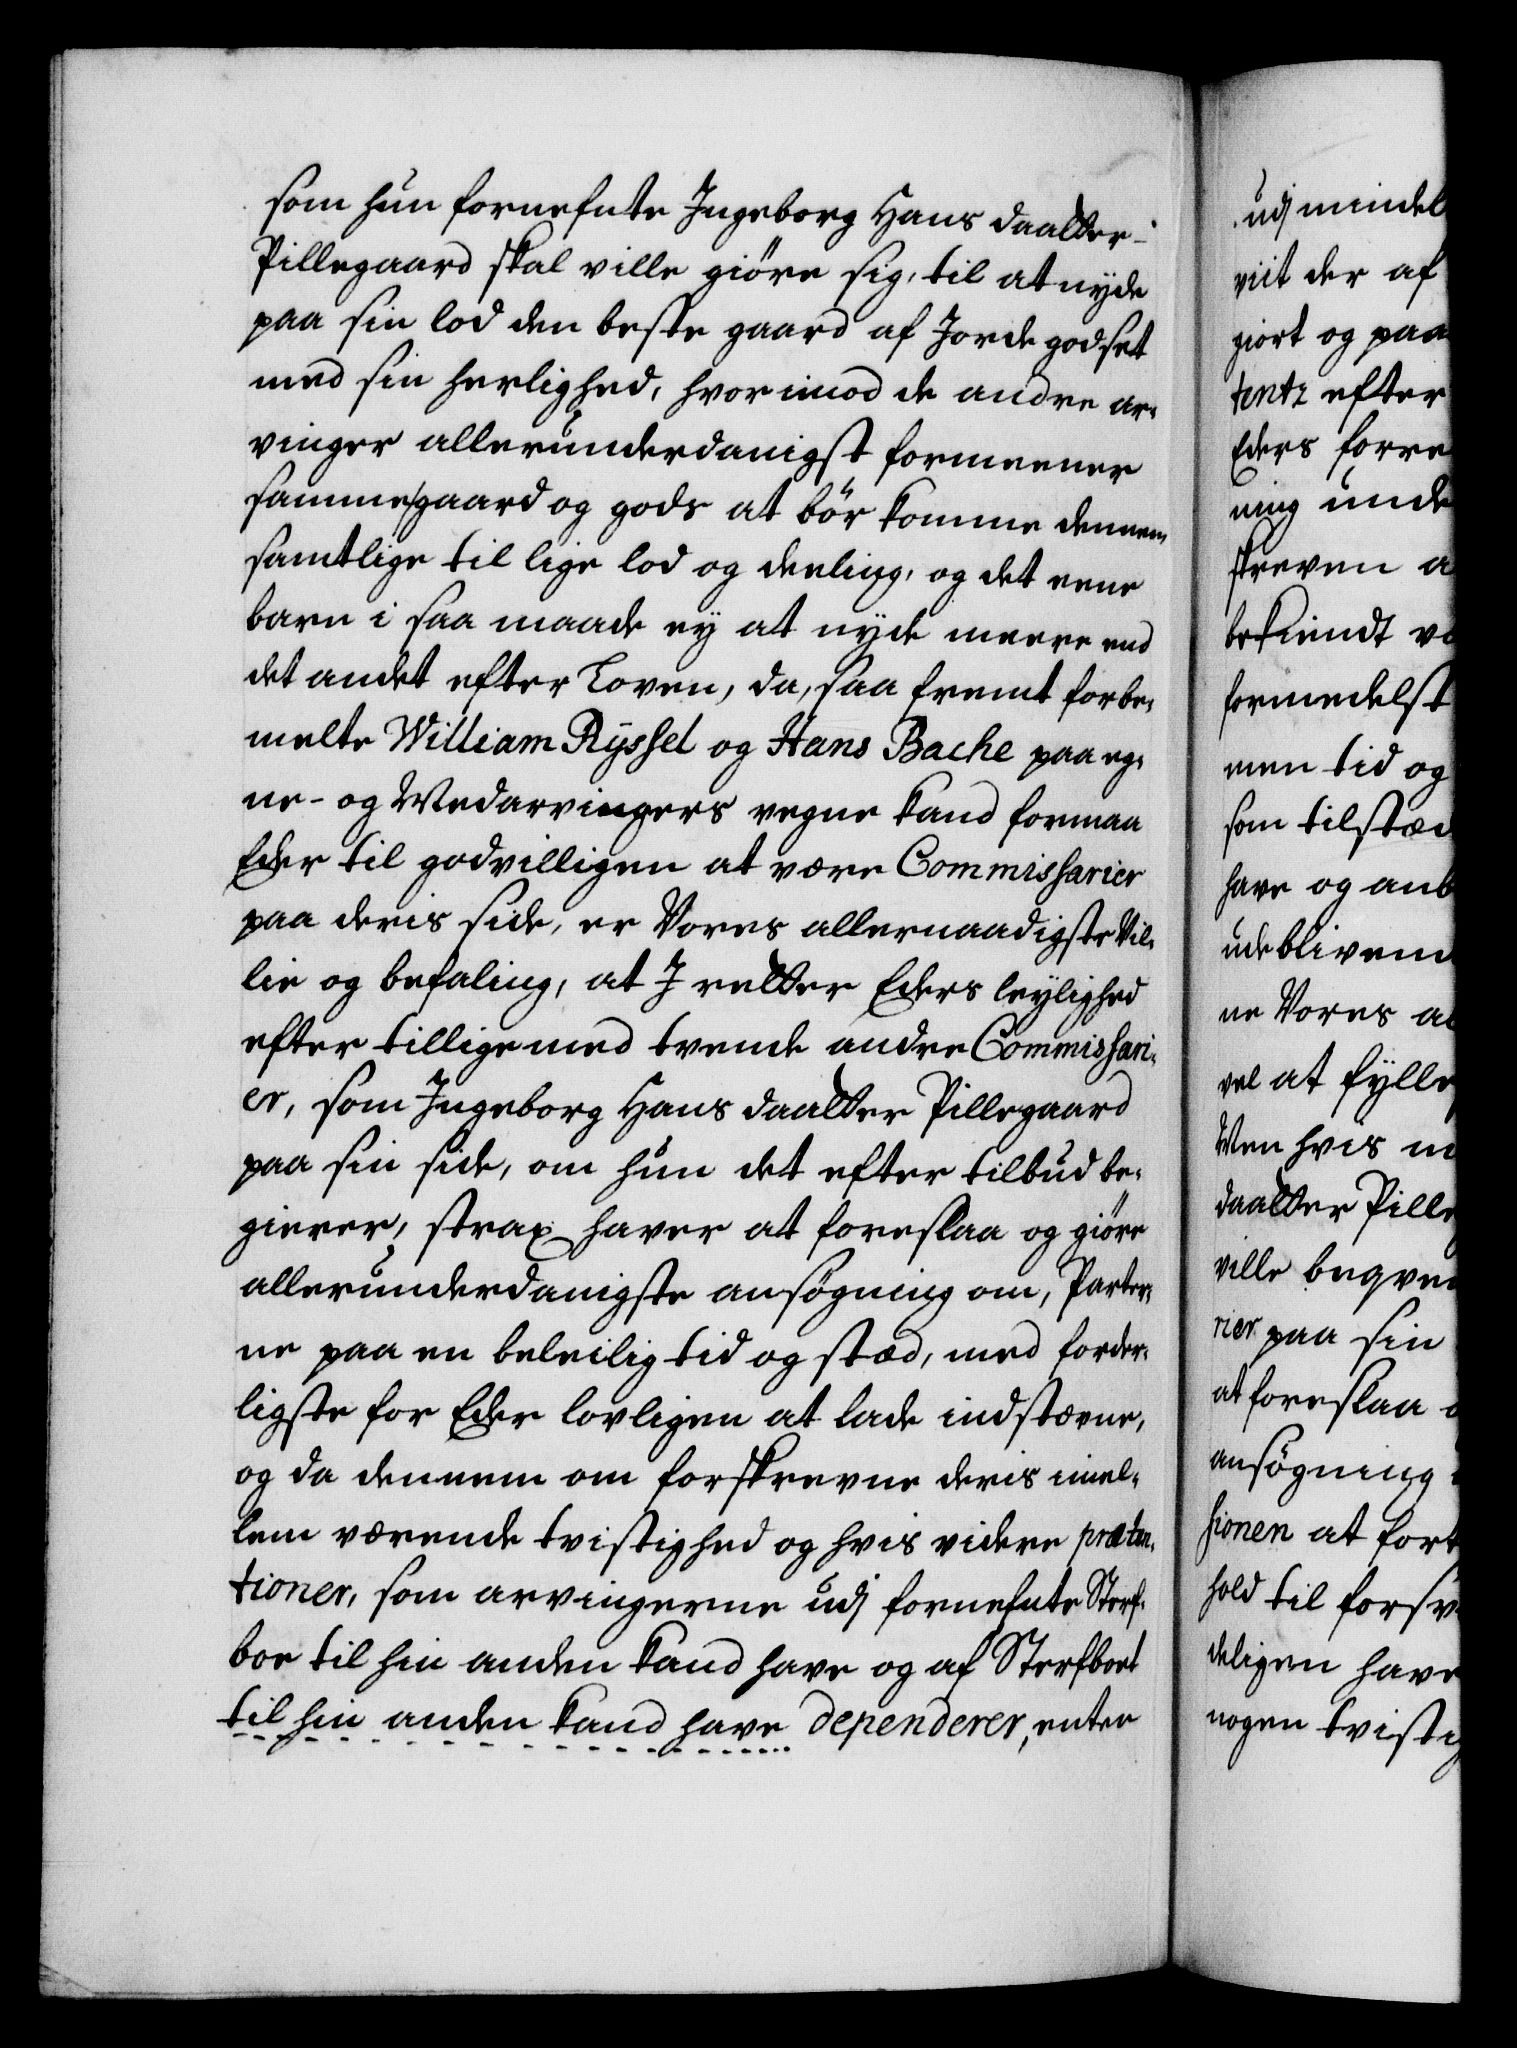 som hun fornefnte Ingeborg Hans daatter
Pillegaard skal ville giöre sig, til at nyde
paa sin lod den beste gaard af Jorde godset
med sin herlighed, hvorimod de andre ar¬
vinger allerunderdanigst formeener
samme gaard og gods at bör komme dennem
samtlige til lige lod og deeling, og det eene
barn i saa maade ey at nyde meere end
det andet efter Loven, da, saa fremt forbe¬
melte William Ryssel og Hans Bache paa eg¬
ne- og Medarvingers vegne kand formaa
Eder til godvilligen at være Commissarier
paa deris side, er Vores allernaadigste Vil¬
lie og befaling, at I retter Eders leylighed
efter tillige med tvende andre Commissari¬
er, som Ingeborg Hans daatter Pillegaard
paa sin side, om hun det efter tilbud be¬
gierer, strax haver at foreslaa og giöre
allerunderdanigste ansögning om, Parter¬
ne paa en beleilig tid og stæd, med forder¬
ligste for Eder lovligen at lade indstævne,
og da dennem om forskrevne deris imel¬
lem værende tvistighed og hvis videre præten¬
tioner, som arvingerne udj fornefnte Sterf¬
boe til hin anden kand have og af Sterfboet
til hin anden kand have dependerer, enten
udj mindel
viit der af
giort og paa
tentz efter
Eders forre
ning unde
skreven a
bekiendt v
formedelst
men tid og
som tilstæd
have og anb
udeblivend
ne Vores al
vel at fylle
Men hvis m
daatter Pille
ville beqvem
rier paa sin
at foreslaa o
ansögning
sionen at fort
hold til forsv
deligen have
nogen tvistig